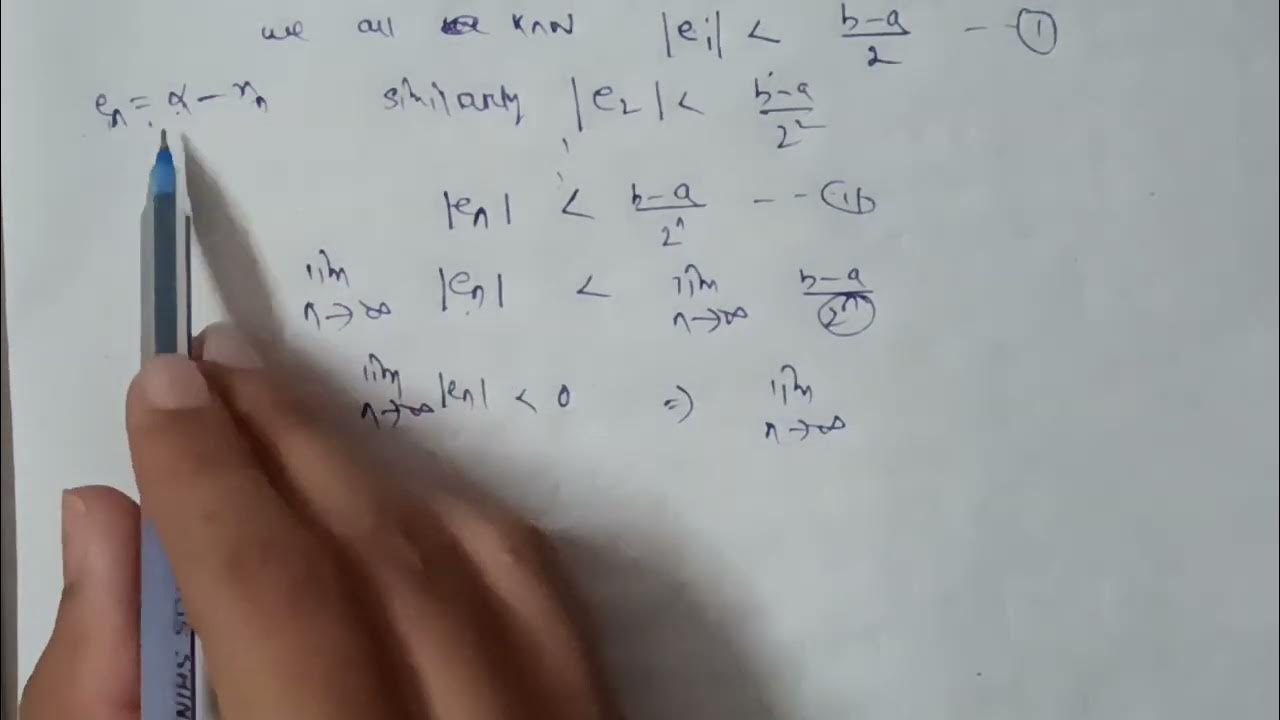 we all knw |e₁| < (b-a)/2 --- ①
eₙ = α - xₙ similarly |e₂| < (b-a)/2²
|eₙ| < (b-a)/2ⁿ ---
lim n→∞ |eₙ| < lim n→∞ (b-a)/2ⁿ
lim n→∞ |eₙ| < 0 ⇒ lim n→∞